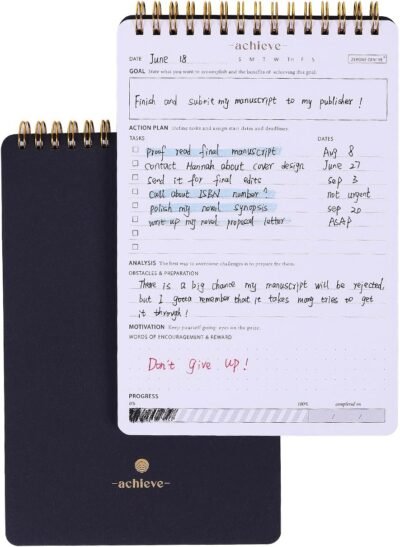 -achieve-
DATE June 18 S M T W Th F S ZEROND CENTRE
GOAL State what you want to accomplish and the benefits of achieving this goal.
Finish and submit my manuscript to my publisher !
ACTION PLAN Define tasks and assign start dates and deadlines.
TASKS DATES
Proof read final manuscript Aug 8
contact Hannah about cover design June 27
send it for final edits sep 3
Call about ISBN number ? not urgent
polish my novel synopsis sep 20
writ up my novel proposal letter ASAP
ANALYSIS The first way to overcome challenges is to prepare for them.
OBSTACLES & PREPARATION
There is a big chance my manuscript will be rejected,
but I gotta remember that it takes many tries to get
it through!
MOTIVATION Keep yourself going: eyes on the prize.
WORDS OF ENCOURAGEMENT & REWARD
Don't give up!
PROGRESS
0% 100% completed on
-achieve-